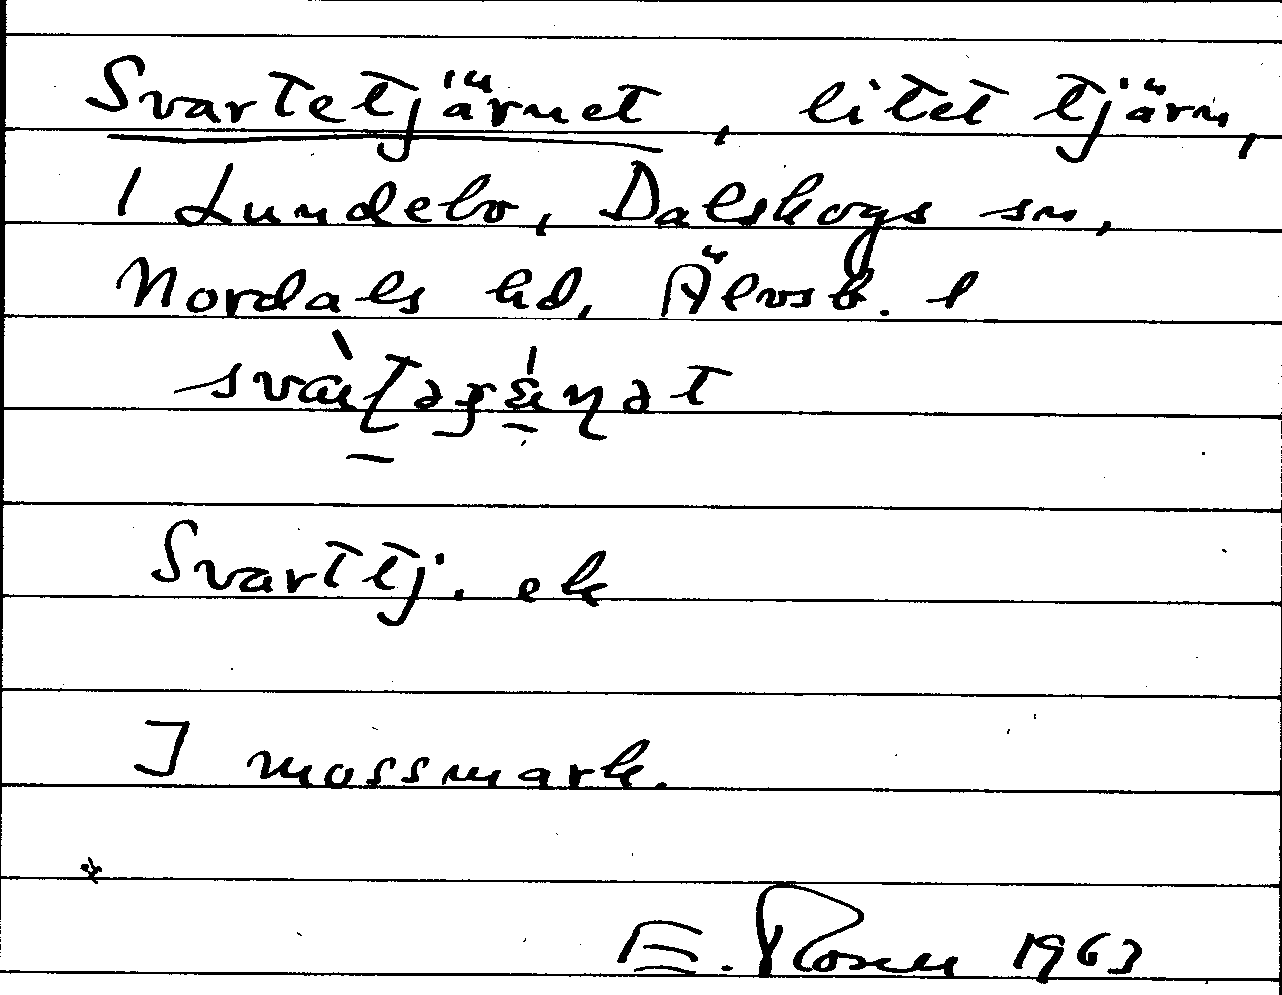 Svartetjärnet, litet tjärn,
1 Lundebo, Dalskogs sn,
Nordals hd, Älvsb. l
Svarttj. ek
I mossmark.
E. Rosen 1963